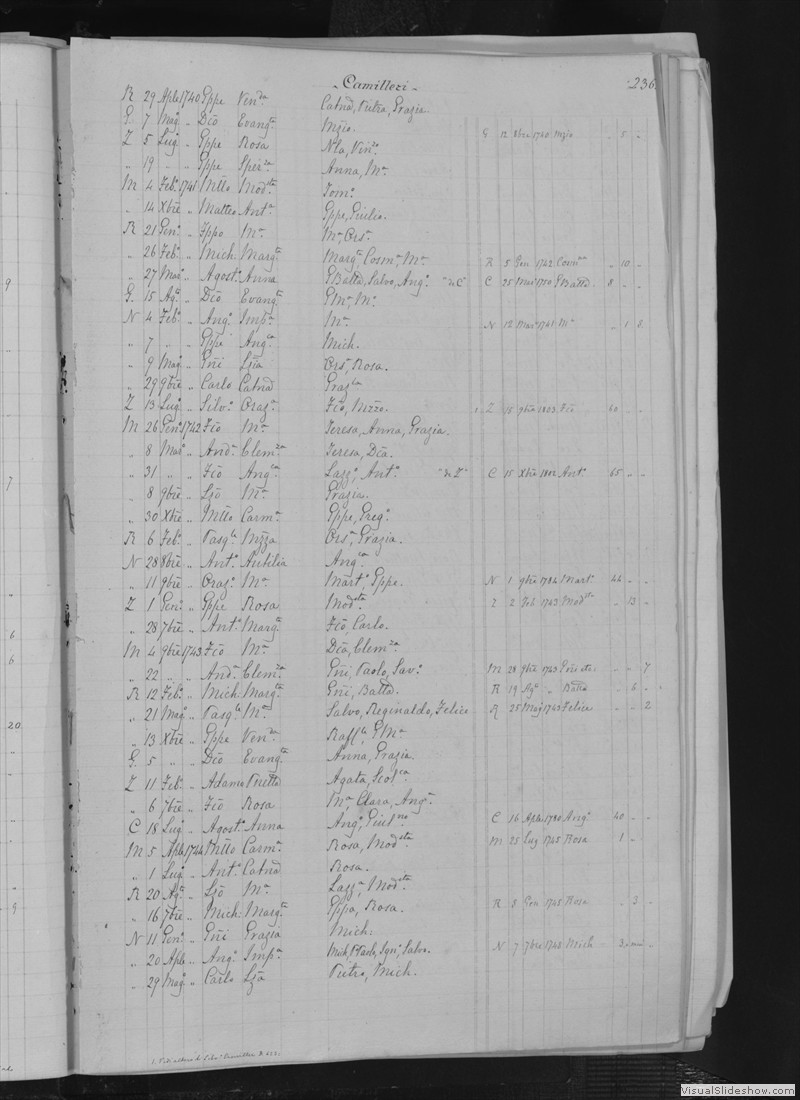 - Camilleri -
236.
R 29 Aple 1740 Gppe Vinda Catnd, Putra, Grazia
G 7 Magº " Dio Evangta Mzio.
G 12 8bre 1740 Mzio " 5 "
Z 5 Lugº " Gppe Rosa Nla, Vinzº
" 19 " " Gppe Sperza Anna, Mª.
M 4 Febº 1741 Mtto Modsta Tomº
" 14 Xbre " Matteo Antª Gppe, Giulio.
R 21 Genº " Gppo Mª Mª, Orsª.
" 26 Febº " Mich: Margta Margta, Cosmº, Mª.
R 5 Gen 1742 Cosmº " 10 "
" 27 Marº " Agostº Anna GBatta, Salvo, Angº. "di C"
C 25 Mar 1750 GBatta 8 " "
G 15 Agº " Dio Evangta GMª Mª.
N 4 Febº " Angº Impª Mª
N 12 Marº 1741 Mª " 1 8
" 7 " " Gppe Angca Mich.
" 9 Magº " Gni Lzia Orsª, Rosa.
" 29 9bre " Carlo Catnd Grazla
Z 13 Lugº " Silvº Orazª Fco, Mzzo.
1 Z 18 9bre 1803 Fco 60 " "
M 26 Genº 1742 Fco Mª Teresa, Anna, Grazia.
" 8 Marº " Andª Clemza Teresa, Dia.
" 31 " " Fco Angca Lazzº, Antº. "di Z"
C 15 Xbre 1802 Antº 65 " "
" 8 9bre " Lzo Mª Grazia.
" 30 Xbre " Mtto Carmª Gppe, Gregº.
R 6 Febº " Pasqle Mzza Orsª, Grazia.
N 28 8bre " Antº Aurilia Angca
" 11 9bre " Orazº Mª Martº, Gppe.
N 1 9bre 1784 Martº 44 " "
Z 1 Genº " Gppe Rosa Modsta
Z 2 Feb 1743 Modsta " 13 "
" 28 7bre " Antº Margta Fco, Carlo.
M 4 9bre 1743 Fco Mª Dia, Clemza
" 22 " " Andª Clemza Gni, Paolo, Savº.
M 28 9bre 1743 " " 7
R 12 Febº " Mich: Margta Gni, Batta.
R 19 Agº " Batta " 6 "
" 21 Magº " Pasqle Mª Salvo, Reginaldo, Felice
R 25 Mag 1743 Felice " " 2
" 13 Xbre " Gppe Venza Raffle, GMª
G 5 " " Dio Evangta Anna, Grazia
Z 11 Febº " Adamo Pretta Agata, Scolca
" 6 7bre " Fco Rosa Mª, Clara, Angª.
C 18 Lugº " Agostº Anna Angº, Giulno
C 16 Aple 1780 Angº 40 " "
M 5 Aple 1744 Mtto Carmª Rosa, Modsta
M 25 Lug 1745 Rosa 1 " "
" 1 Lugº " Antº Catnd Rosa.
R 20 Agº " Lzo Mª Lazzª, Modsta
" 16 7bre " Mich: Margta Gppa, Rosa.
R 8 Gen 1745 Rosa " 3 "
N 11 Genº " Gni Grazia Mich:
" 20 Aple " Angº Impª Mich, Paolo, Ignº, Salvo.
N 7 7bre 1748 Mich
" 29 Magº " Carlo Lzia Putro, Mich.
9
7
6
6
20
9
VisualSlideshow.com